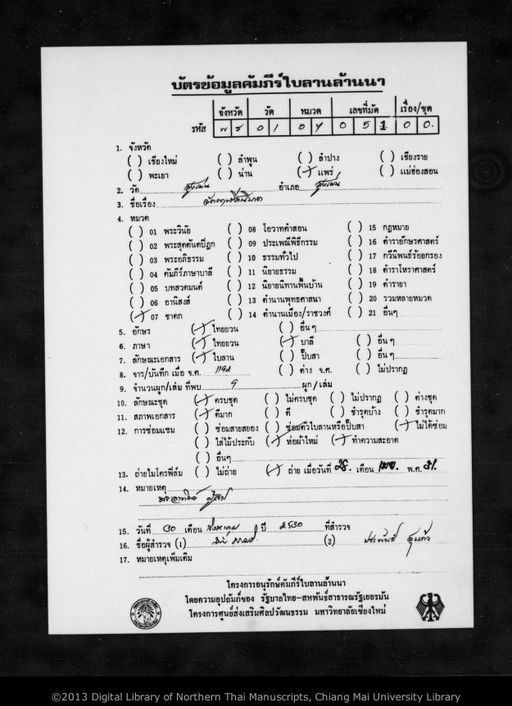 บัตรข้อมูลคัมภีร์ใบลานล้านนา
จังหวัด วัด หมวด เลขที่มัด เรื่อง/ชุด
รหัส พร 01 07 051 00
1. จังหวัด
( ) เชียงใหม่ ( ) ลำพูน ( ) ลำปาง ( ) เชียงราย
( ) พะเยา ( ) น่าน (/) แพร่ ( ) แม่ฮ่องสอน
2. วัด สูงเม่น อำเภอ สูงเม่น
3. ชื่อเรื่อง
4. หมวด
( ) 01 พระวินัย ( ) 08 โอวาทคำสอน ( ) 15 กฎหมาย
( ) 02 พระสุตตันตปิฎก ( ) 09 ประเพณีพิธีกรรม ( ) 16 ตำราอักษรศาสตร์
( ) 03 พระอภิธรรม ( ) 10 ธรรมทั่วไป ( ) 17 กวีนิพนธ์ร้อยกรอง
( ) 04 คัมภีร์ภาษาบาลี ( ) 11 นิยายธรรม ( ) 18 ตำราโหราศาสตร์
( ) 05 บทสวดมนต์ ( ) 12 นิยายนิทานพื้นบ้าน ( ) 19 ตำรายา
( ) 06 อานิสงส์ ( ) 13 ตำนานพุทธศาสนา ( ) 20 รวมหลายหมวด
(/) 07 ชาดก ( ) 14 ตำนานเมือง/ราชวงศ์ ( ) 21 อื่นๆ
5. อักษร (/) ไทยยวน ( ) อื่นๆ
6. ภาษา (/) ไทยยวน (/) บาลี ( ) อื่นๆ
7. ลักษณะเอกสาร (/) ใบลาน ( ) ปั๊บสา ( ) อื่นๆ
8. จาร/บันทึก เมื่อ จ.ศ. 1192 ( ) ต่าง จ.ศ. ( ) ไม่ปรากฏ
9. จำนวนผูก/เล่ม ที่พบ 9 ผูก/เล่ม
10. ลักษณะชุด (/) ครบชุด ( ) ไม่ครบชุด ( ) ไม่ปรากฏ ( ) ต่างชุด
11. สภาพเอกสาร (/) ดีมาก ( ) ดี ( ) ชำรุดบ้าง ( ) ชำรุดมาก
12. การซ่อมแซม ( ) ซ่อมสายสยอง ( ) ซ่อมตัวใบลานหรือปั๊บสา (/) ไม่ได้ซ่อม
( ) ใส่ไม้ประกับ (/) ห่อผ้าใหม่ (/) ทำความสะอาด
( ) อื่นๆ
13. ถ่ายไมโครฟิล์ม ( ) ไม่ถ่าย (/) ถ่าย เมื่อวันที่ 28 เดือน เมย. พ.ศ. 31
14. หมายเหตุ
15. วันที่ 30 เดือน สิงหาคม ปี 2530 ที่สำรวจ
16. ชื่อผู้สำรวจ (1) (2)
17. หมายเหตุเพิ่มเติม
โครงการอนุรักษ์คัมภีร์ใบลานล้านนา
โดยความอุปถัมภ์ของ รัฐบาลไทย-สหพันธ์สาธารณรัฐเยอรมัน
โครงการศูนย์ส่งเสริมศิลปวัฒนธรรม มหาวิทยาลัยเชียงใหม่
©2013 Digital Library of Northern Thai Manuscripts, Chiang Mai University Library